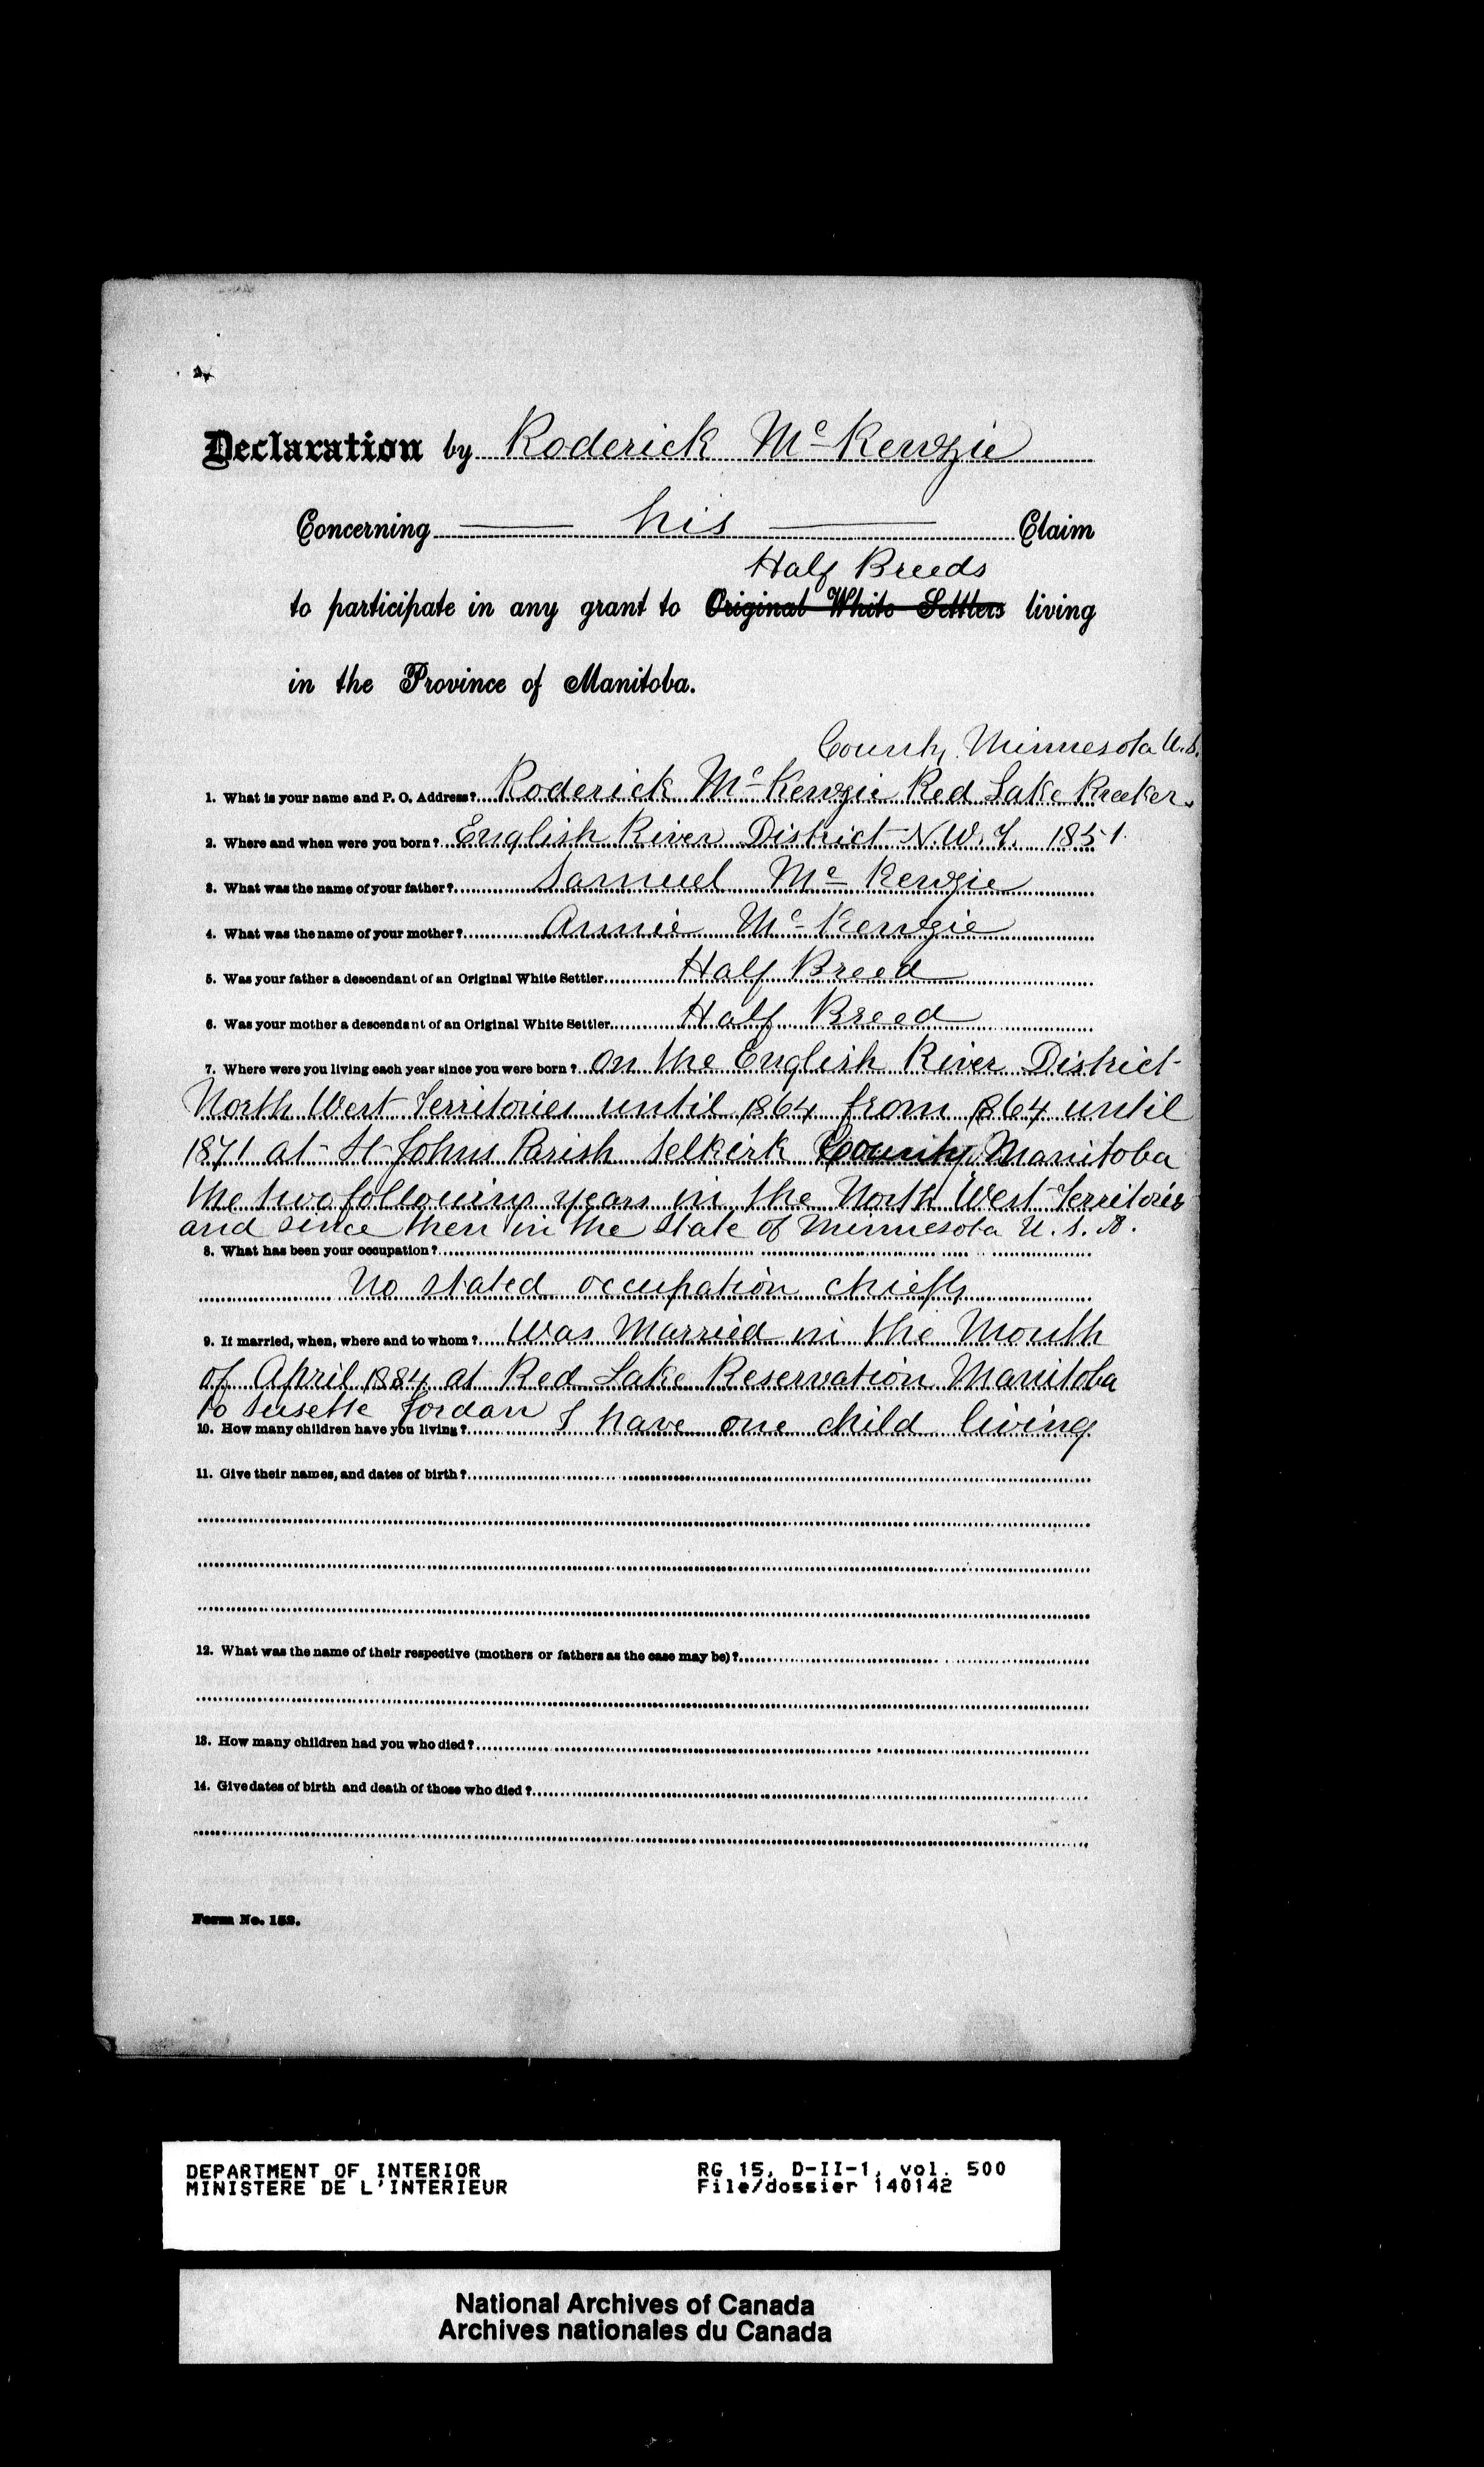 Declaration by Roderick Mc Kenzie
Concerning his Claim
Half Breeds
to participate in any grant to Original White Settlers living
in the Province of Manitoba.
County Minnesota U.S.
1. What is your name and P. O. Address? Roderick Mc Kenzie Red Lake
2. Where and when were you born? English River District N.W.T. 1851.
3. What was the name of your father? Samuel Mc Kenzie
4. What was the name of your mother? Annie Mc Kenzie
5. Was your father a descendant of an Original White Settler Half Breed
6. Was your mother a descendant of an Original White Settler Half Breed
7. Where were you living each year since you were born? On the English River District
North West Territories until 1864 from 1864 until
1871 at St Johns Parish Selkirk County Manitoba
the two following years in the North West Territories
and since then in the State of Minnesota U.S.A.
8. What has been your occupation?
No stated occupation chiefly
9. If married, when, where and to whom? Was Married in the Month
of April 1884 at Red Lake Reservation Manitoba
to Susette Jordan
10. How many children have you living? I have one child living
11. Give their names, and dates of birth?
12. What was the name of their respective (mothers or fathers as the case may be)?
13. How many children had you who died?
14. Give dates of birth and death of those who died?
Form No. 152.
DEPARTMENT OF INTERIOR RG 15, D-II-1, vol. 500
MINISTERE DE L'INTERIEUR File/dossier 140142
National Archives of Canada
Archives nationales du Canada